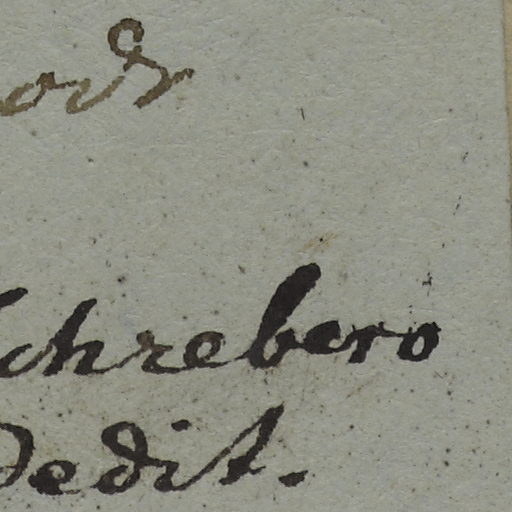 Schrebero
dedit.